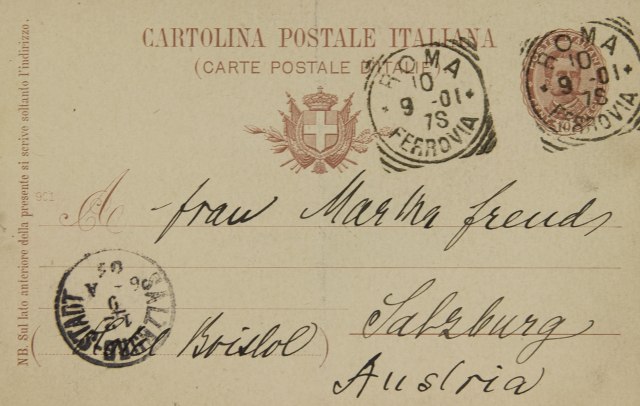 CARTOLINA POSTALE ITALIANA
(CARTE POSTALE D'ITALIE)
ROMA
10
9 - 01
7S
FERROVIA
ROMA
10
9 - 01
7S
FERROVIA
NB. Sul lato anteriore della presente si scrive soltanto l'indirizzo.
A Frau Martha Freud
Salzburg
( Hotel Bristol )
Austria
STADT